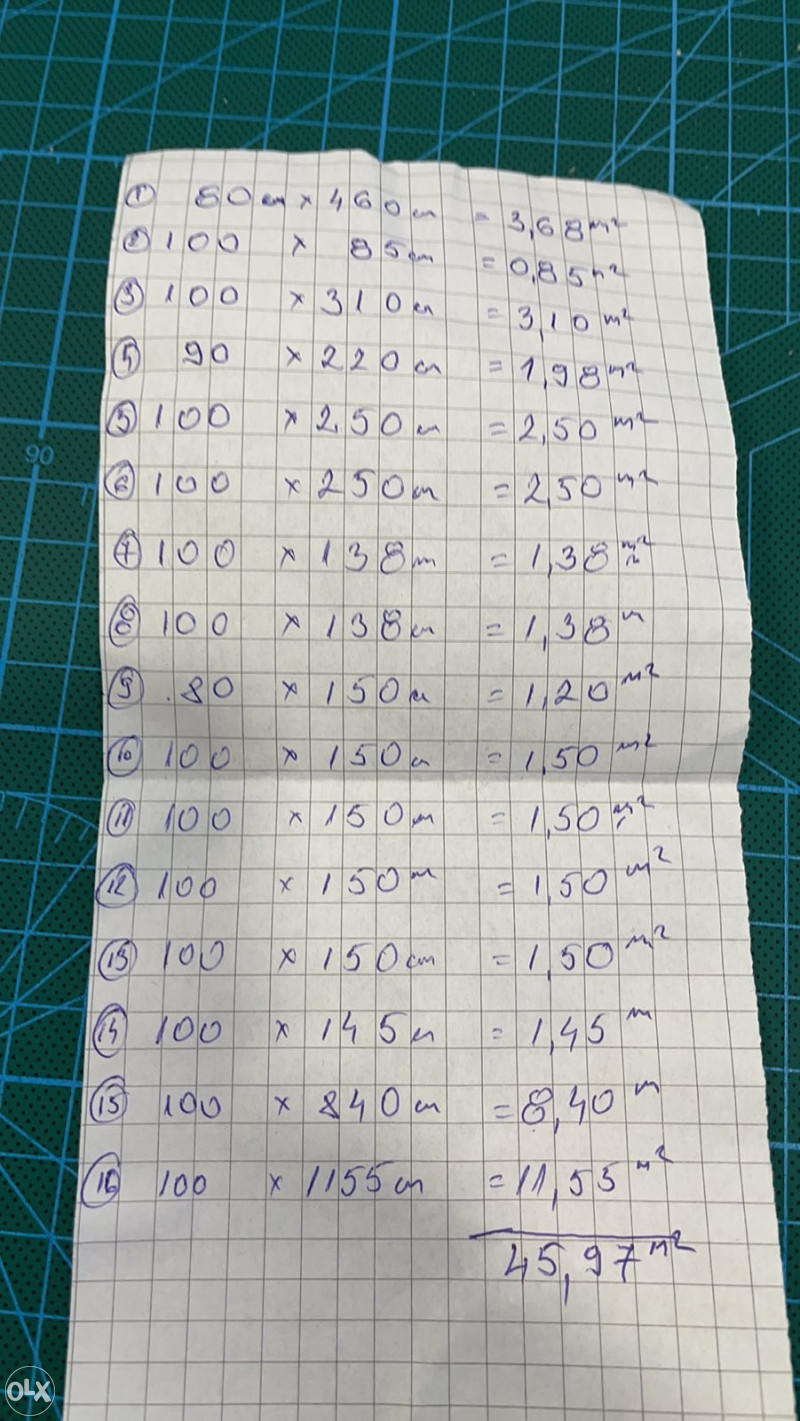 ① 80cm × 460cm = 3,68m²
② 100 × 85cm = 0,85m²
③ 100 × 310cm = 3,10m²
④ 90 × 220cm = 1,98m²
⑤ 100 × 2.50cm = 2,50m²
⑥ 100 × 250cm = 2,50m²
⑦ 100 × 138m = 1,38m²
⑧ 100 × 138cm = 1,38m
⑨ .80 × 150m = 1,20m²
⑩ 100 × 150m = 1,50m²
⑪ 100 × 150m = 1,50m²
⑫ 100 × 150m = 1,50m²
⑬ 100 × 150cm = 1,50m²
⑭ 100 × 145m = 1,45m
⑮ 100 × 840cm = 8,40m
⑯ 100 × 1155cm = 11,55m²
45,97m²
90
OLX